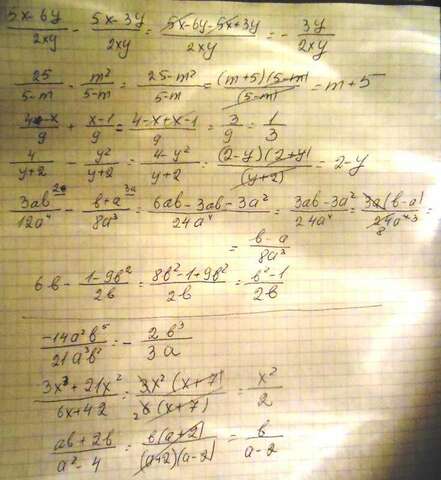 (5x-6y)/(2xy) - (5x-3y)/(2xy) = (5x-6y-5x+3y)/(2xy) = - 3y/(2xy)
25/(5-m) - m²/(5-m) = (25-m²)/(5-m) = (m+5)(5-m)/(5-m) = m+5
(4-x)/9 + (x-1)/9 = (4-x+x-1)/9 = 3/9 = 1/3
4/(y+2) - y²/(y+2) = (4-y²)/(y+2) = (2-y)(2+y)/(y+2) = 2-y
(3ab^(2a))/(12a⁴) - (b+a^(3a))/(8a³) = (6ab-3ab-3a²)/(24a⁴) = (3ab-3a²)/(24a⁴) = 3a(b-a)/(24a⁴ 3) =
8
= (b-a)/(8a³)
6b - (1-9b²)/(2b) = (8b²-1+9b²)/(2b) = (b²-1)/(2b)
(-14a²b⁵)/(21a³b²) = - 2b³/(3a)
(3x³+21x²)/(6x+42) = 3x²(x+7)/(₂6(x+7)) = x²/2
(ab+2b)/(a²-4) = b(a+2)/((a+2)(a-2)) = b/(a-2)